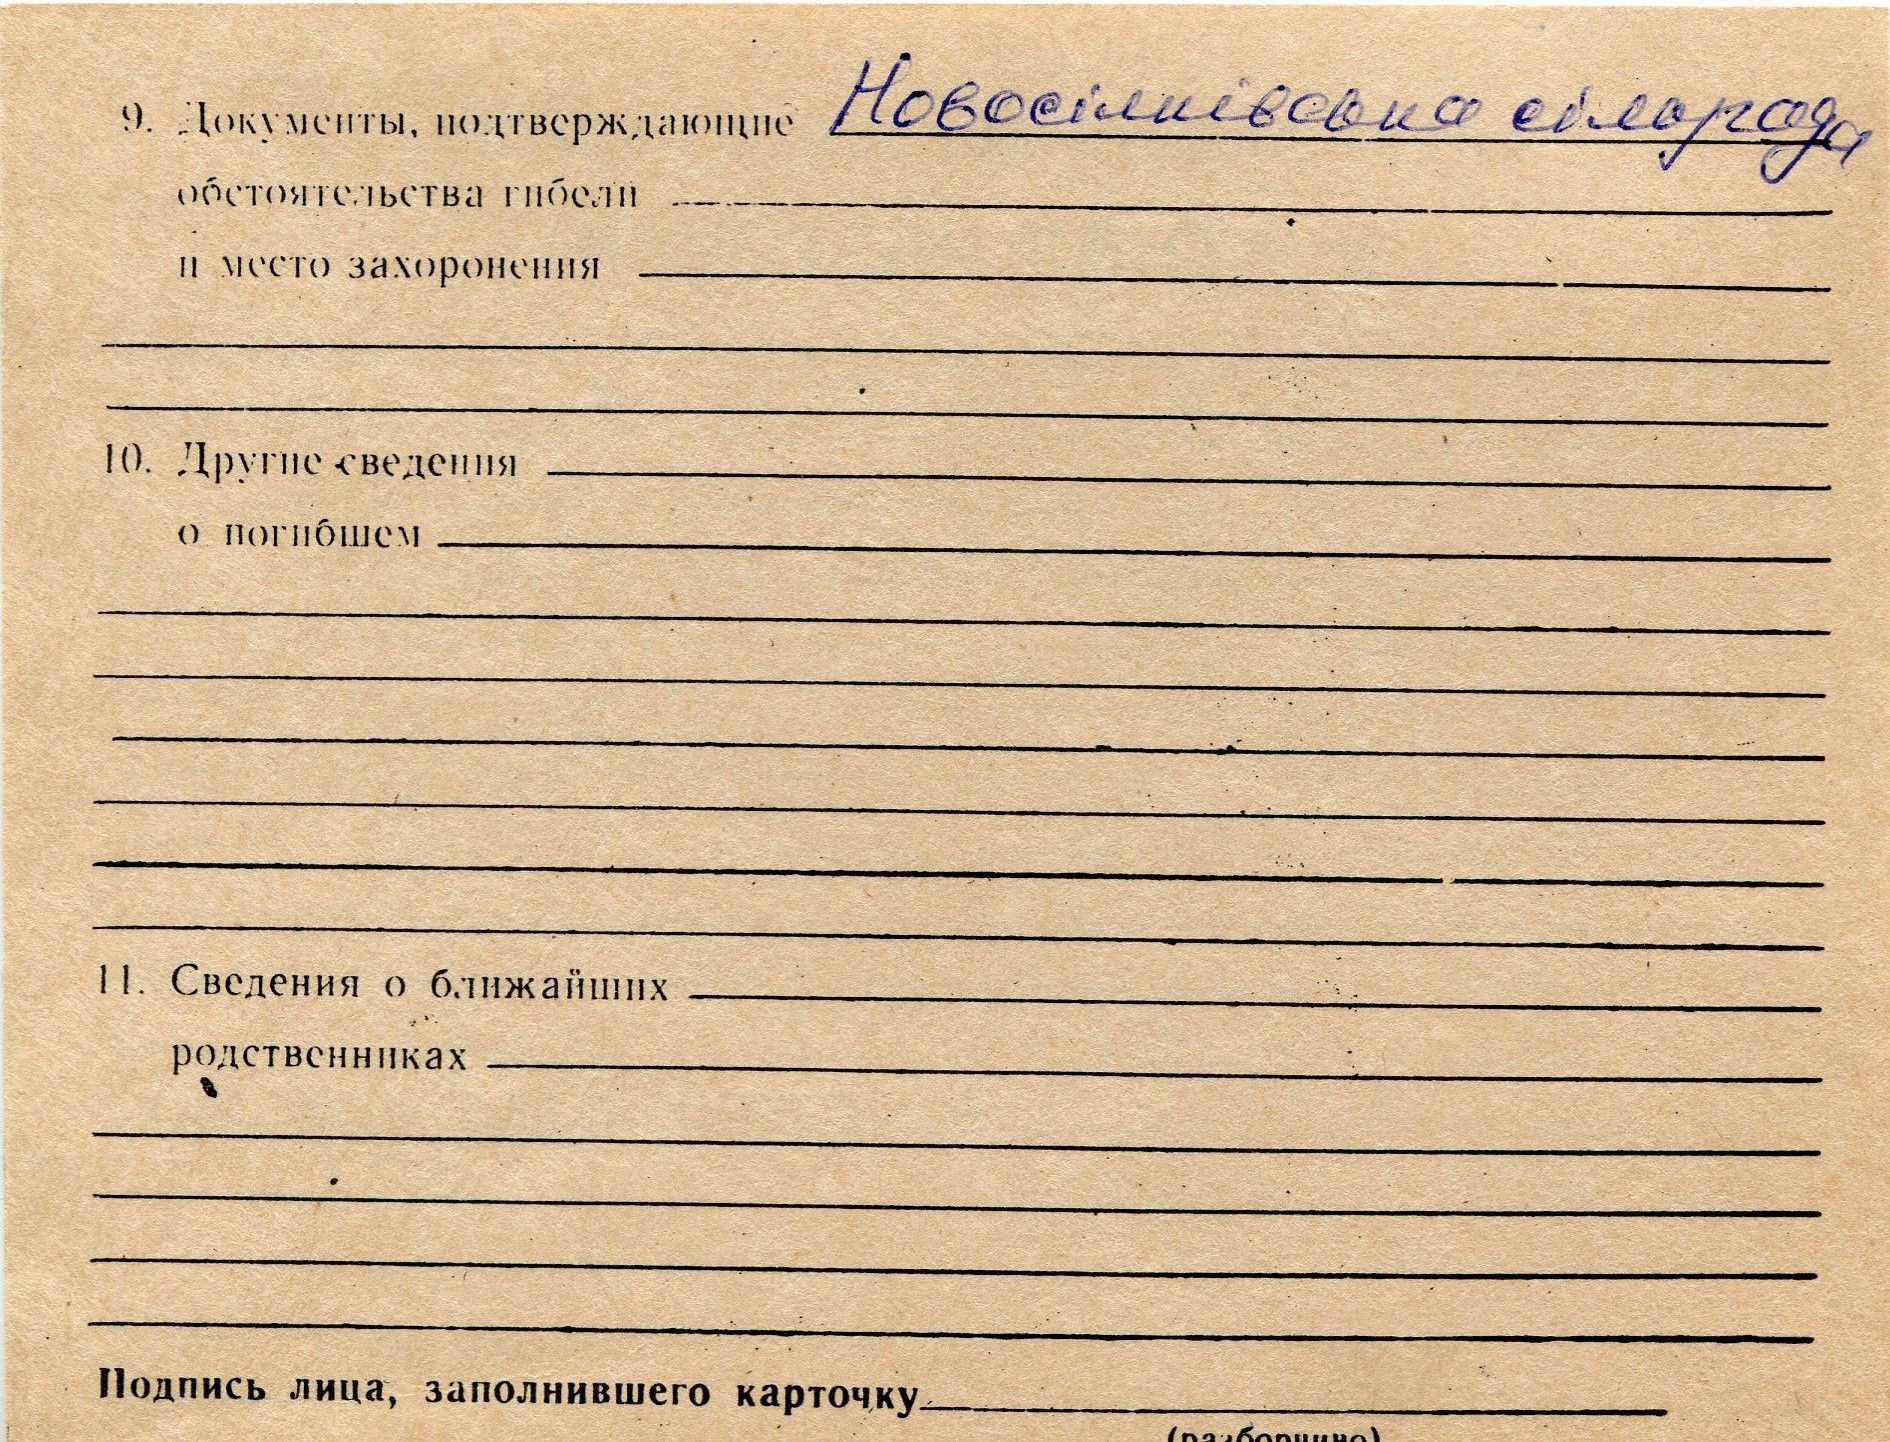 9. Документы, подтверждающие Новосілківська сільрада
обстоятельства гибели
и место захоронения
10. Другие сведения
о погибшем
11. Сведения о ближайших
родственниках
Подпись лица, заполнившего карточку
(разборчиво)